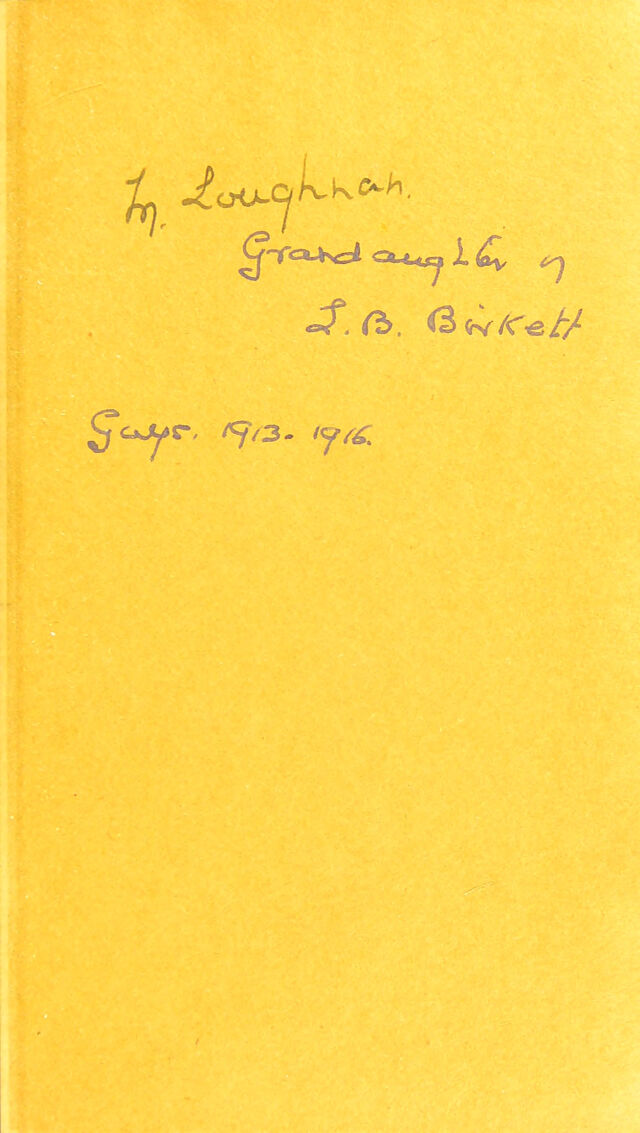 M. Loughnan.
Grandaughter of
L. B. Birkett
Guys. 1913. 1916.